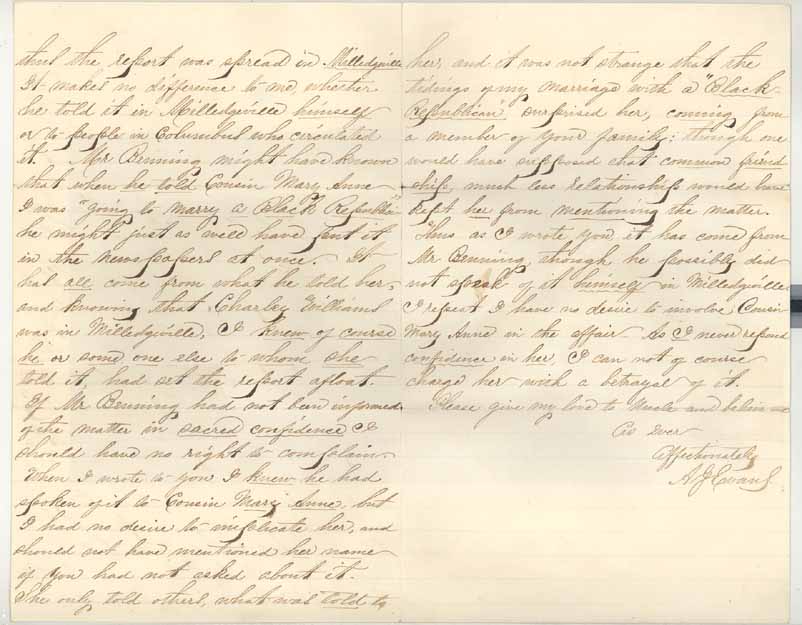 thus the report was spread in Milledgeville
It makes no difference to me, whether
he told it in Milledgeville himself
or to people in Columbus who circulated
it. Mr Benning might have known
that when he told Cousin Mary Anne
I was "going to marry a Black Republi"
he might just as well have put it
in the newspapers at once. It
has all come from what he told her,
and knowing that Charley Williams
was in Milledgeville, I knew of course
he or some one else to whom she
told it, had set the report afloat.
If Mr Benning had not been informed
of the matter in sacred confidence I
should have no right to complain.
When I wrote to you I knew he had
spoken of it to Cousin Mary Anne, but
I had no desire to implicate her, and
should not have mentioned her name
if you had not asked about it.
She only told others, what was told to
her, and it was not strange that the
tidings of my marriage with a "Black-
Republican" surprised her, coming from
a member of your family: though one
would have supposed that common friend
ship, much less relationship would have
kept her from mentioning the matter.
Thus as I wrote you, it has come from
Mr Benning, though he possibly did
not speak of it himself in Milledgeville
I repeat I have no desire to involve Cousin
Mary Anne in the affair. As I never reposed
confidence in her, I can not of course
charge her with a betrayal of it.
Please give my love to Uncle and believe me
As ever
Affectionately
A J Evans